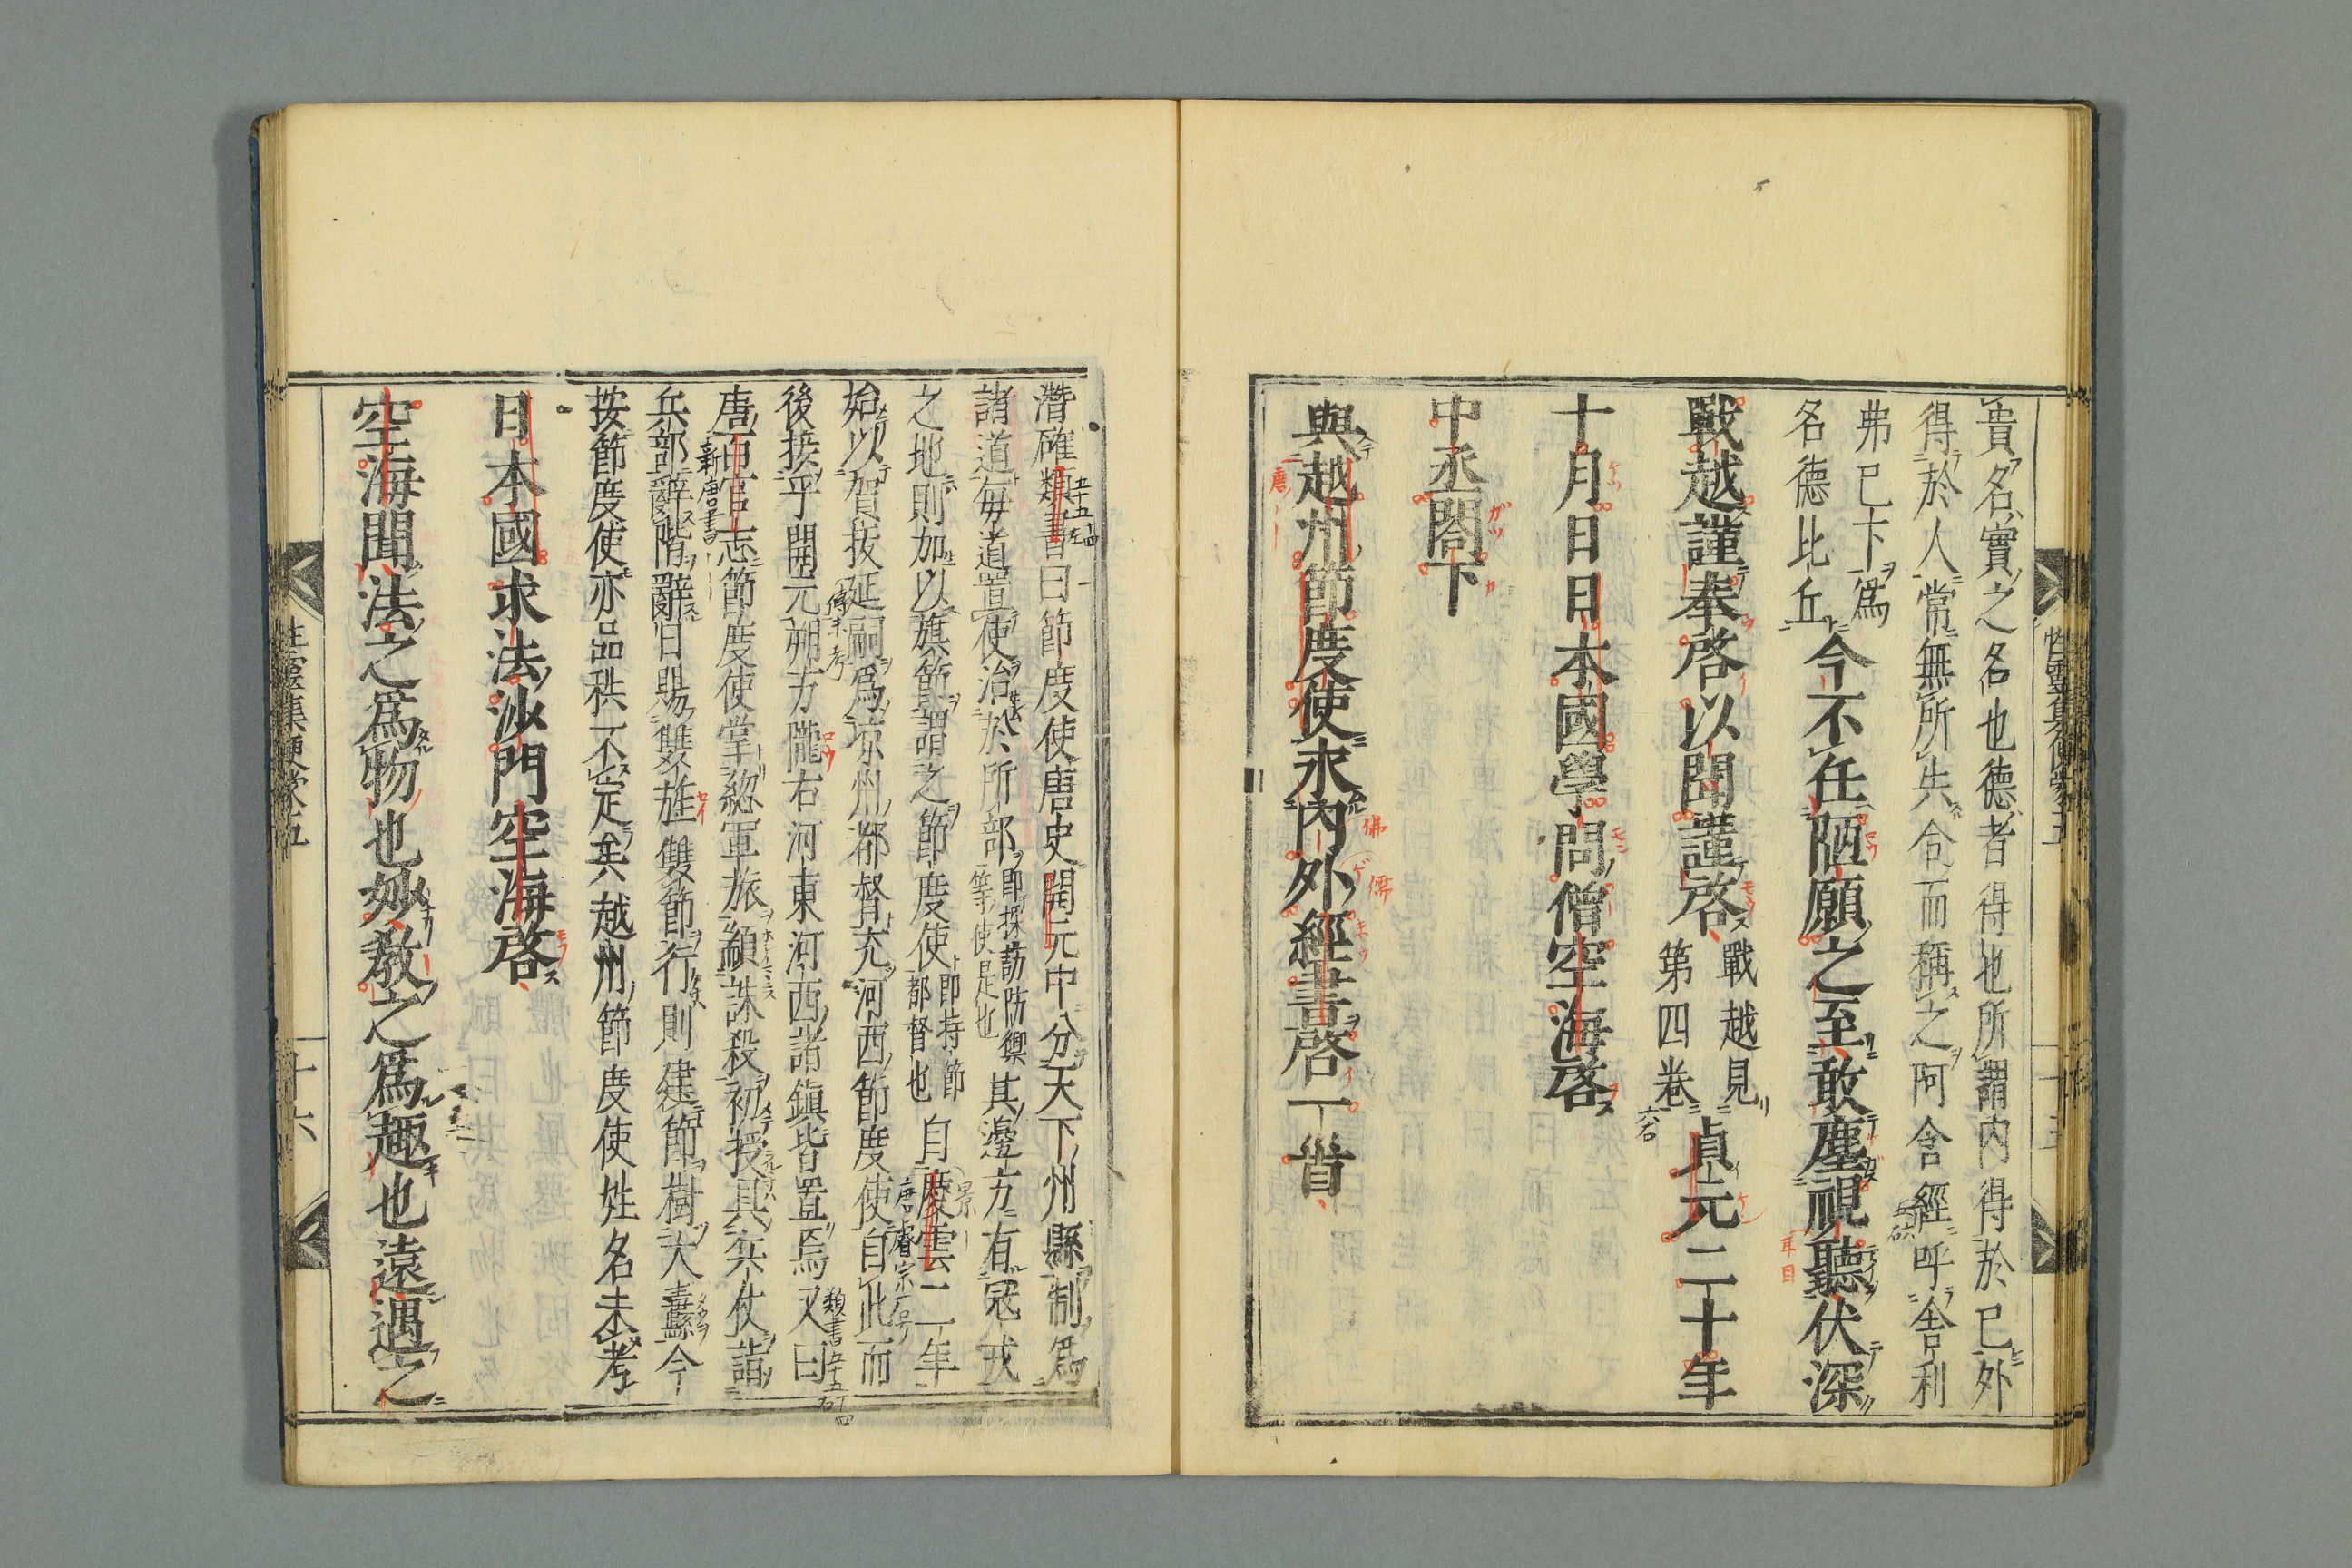 貴名實之名也德者得也所謂内得於已外
得於人常無所失合而稱之阿含經呼舍利
弗已下爲
名德比丘
今不任陋願之至敢塵視聽伏深
戰越謹奉啓以聞謹啓
戰越見
第四卷
貞元二十年
十月日日本國學問僧空海啓
中丞閤下
與越州節度使求内外經書啓一首
潛確類書曰節度使唐史開元中分天下州縣制爲
諸道毎道置使治於所部
即採訪防禦
等使是也
其邊方有冦戎
之地則加以旗節謂之節度使
即持節
都督也
自慶雲二年
始以賀抜延嗣爲凉州都督充河西節度使自此而
後接乎開元朔方隴右河東河西諸鎮皆置焉又曰
唐百官志節度使掌総軍旅顓誅殺初授具兵仗詣
兵部辭階辭日賜雙旌雙節行則建節樹大纛今
按節度使亦品秩不定矣越州節度使姓名未考
日本國求法沙門空海啓
空海聞法之爲物也妙教之爲趣也遠遇之
性靈集便蒙五
十六